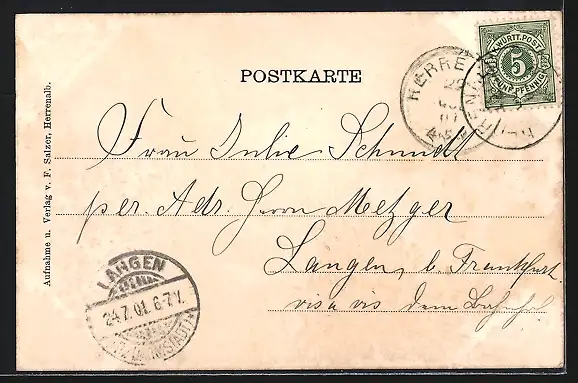 POSTKARTE
K. WÜRTT. POST
5
FÜNF PFENNIG
HERRENALB
Frau Julie Schmidt
per. Adr. Herrn Metzger
Langen, b. Frankfurt.
vis a vis dem Bahnhof
LANGEN
24.7.01. 6-7 V.
Aufnahme u. Verlag v. F. Salzer, Herrenalb.